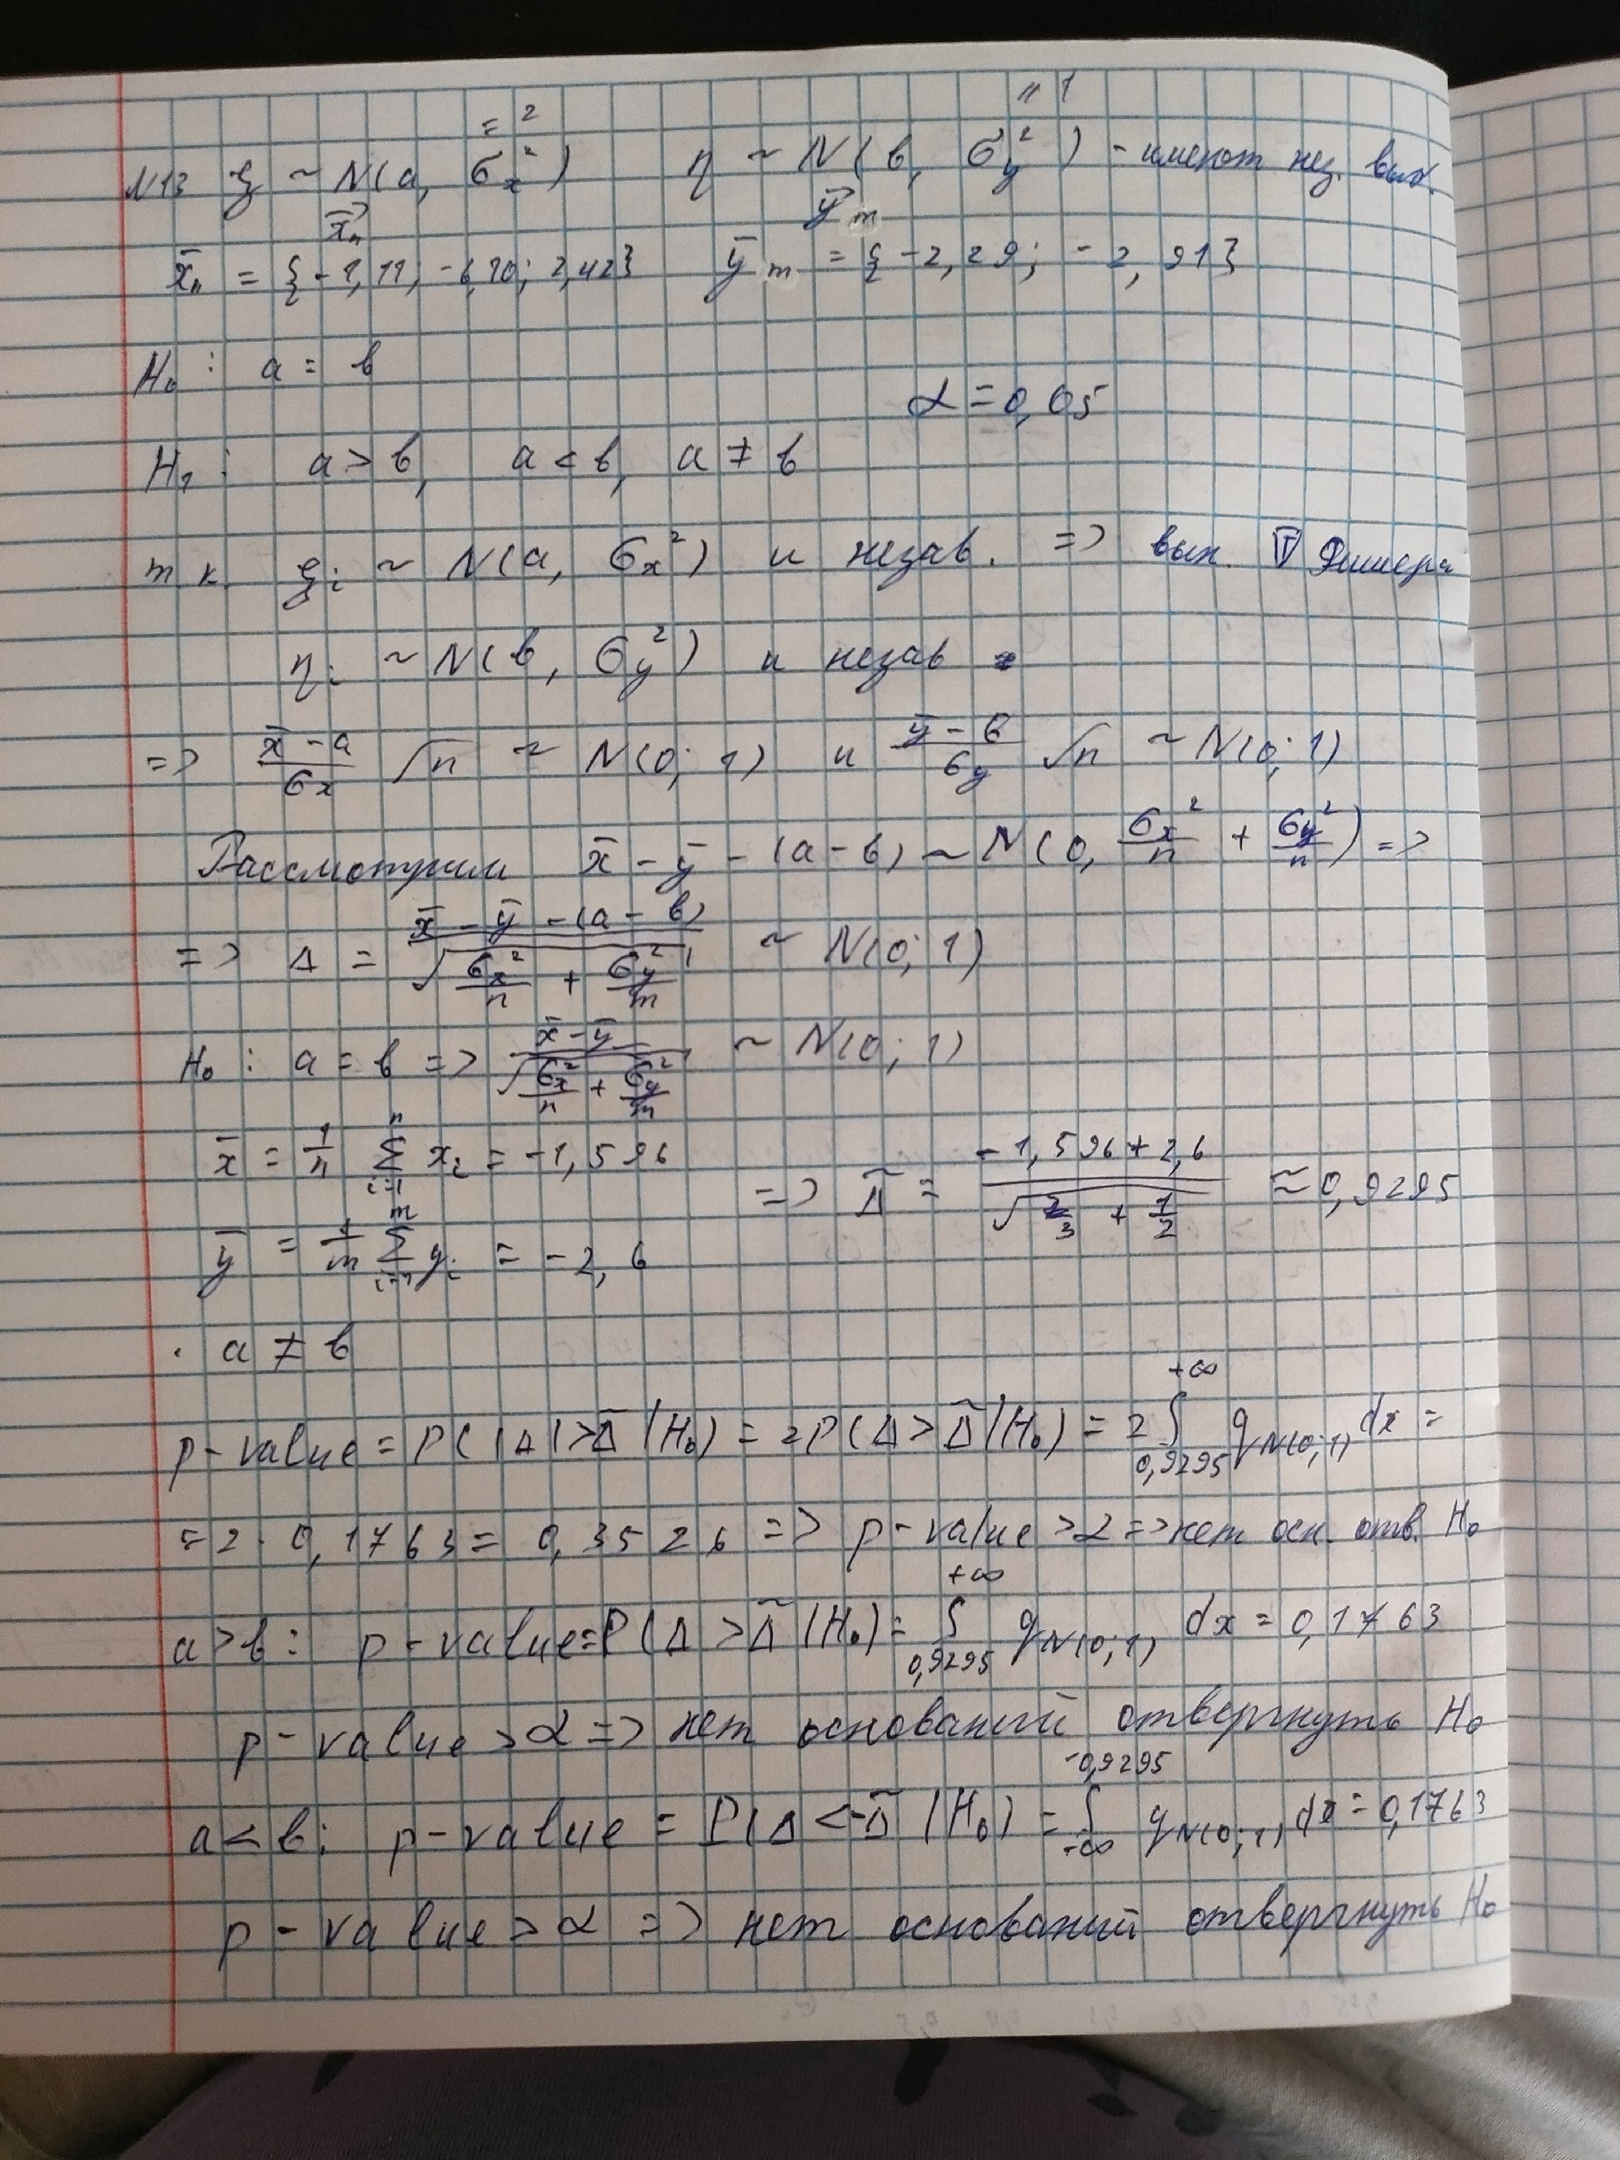 = 2 " 1
N13 ξ ~ N(a, σx²) η ~ N(b, σy²) - имеют нез. вып.
x⃗n y⃗m
x̄n = {-1,11; -6,10; 2,42} ȳm = {-2,29; -2,91}
H₀: a = b
α = 0,05
H₁: a > b, a < b, a ≠ b
т к ξi ~ N(a, σx²) и незав. => вып. Фишера
ηi ~ N(b, σy²) и незав
=> (x̄ - a)/σx √n ~ N(0; 1) и (ȳ - b)/σy √n ~ N(0; 1)
Рассмотрим x̄ - ȳ - (a - b) ~ N(0, σx²/n + σy²/n) =>
=> Δ = (x̄ - ȳ - (a - b))/√(σx²/n + σy²/m) ~ N(0; 1)
H₀: a = b => (x̄ - ȳ)/√(σx²/n + σy²/m) ~ N(0; 1)
x̄ = 1/n Σ(i=1..n) xi = -1,596
=> Δ̃ = (-1,596 + 2,6)/√(2/3 + 1/2) ≈ 0,9295
ȳ = 1/m Σ(i=1..m) yi = -2,6
· a ≠ b
p-value = P(|Δ| > Δ̃ | H₀) = 2P(Δ > Δ̃ | H₀) = 2 ∫(0,9295..+∞) q N(0;1) dx =
= 2 · 0,1763 = 0,3526 => p-value > α => нет осн. отв. H₀
a > b: p-value = P(Δ > Δ̃ | H₀) = ∫(0,9295..+∞) q N(0;1) dx = 0,1763
p-value > α => нет оснований отвергнуть H₀
a < b: p-value = P(Δ < -Δ̃ | H₀) = ∫(-∞..-0,9295) q N(0;1) dx = 0,1763
p-value > α => нет оснований отвергнуть H₀